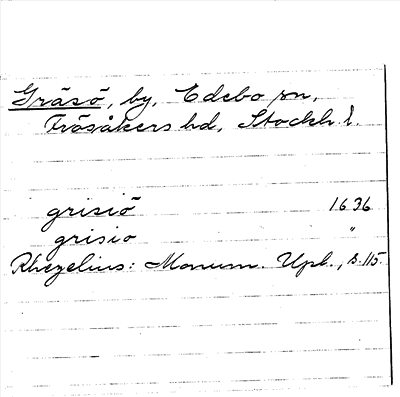 Gräsö, by, Edebo sn,
Frösåkers hd, Stockh. l.
grisiö 1636
grisio "
Rhezelius: Monum. Upl., s. 115.